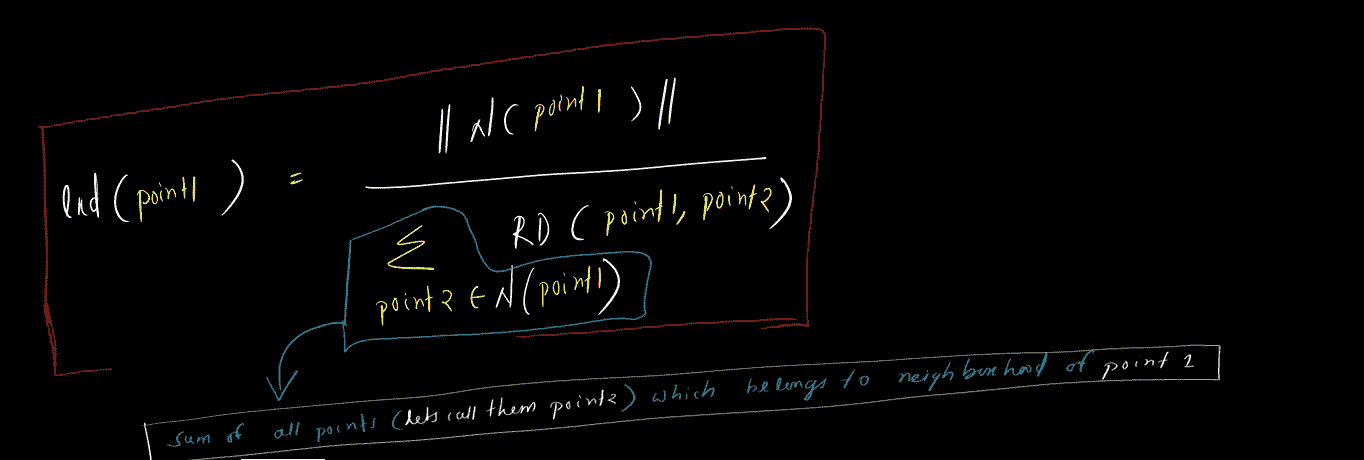 || N( point1 ) ||
lrd ( point1 ) =
RD ( point1, point2 )
Σ
point2 ∈ N( point1 )
sum of all points (lets call them point2) which belongs to neighborhood of point 1